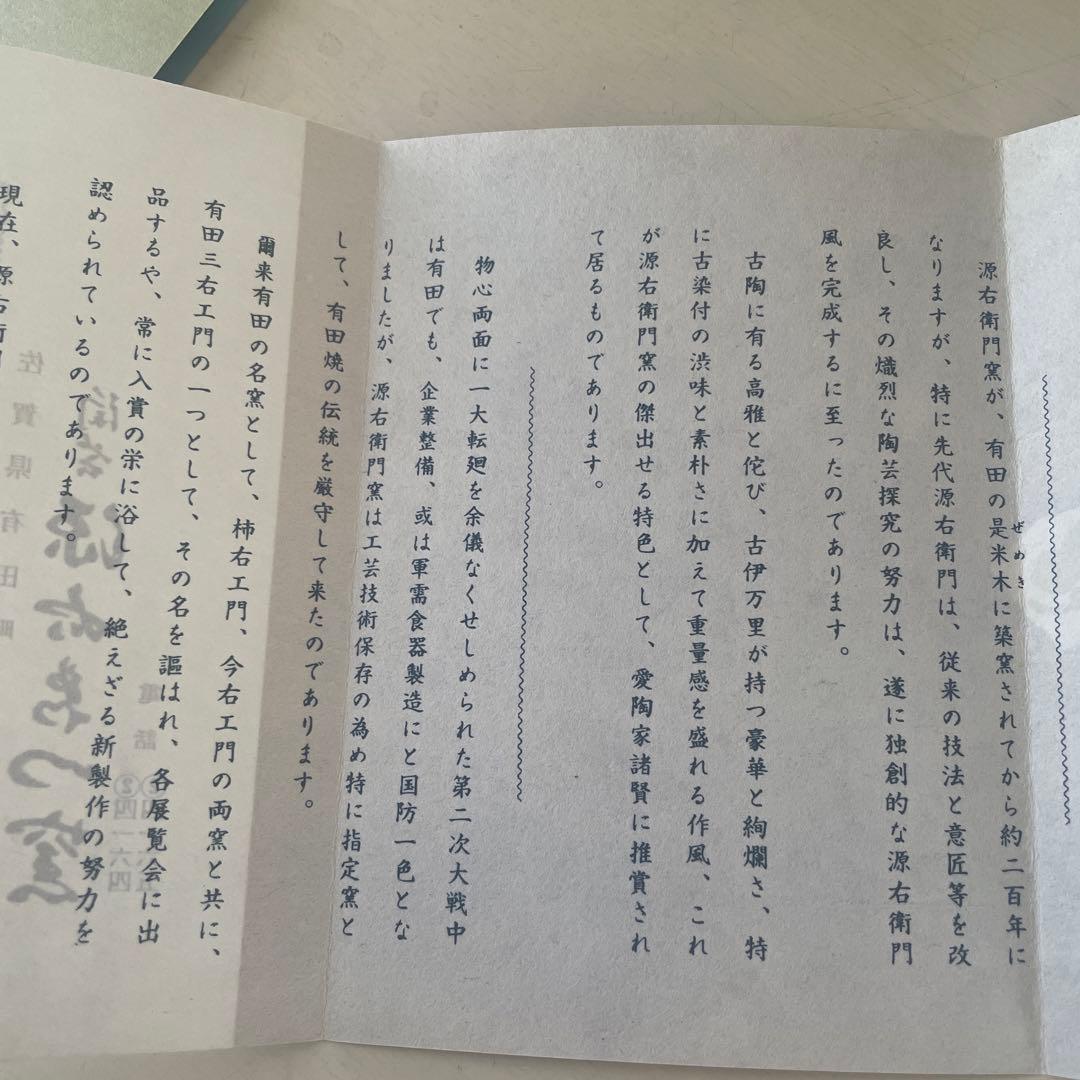 源右衛門窯が、有田の是米木に築窯されてから約二百年に
ぜめき
なりますが、特に先代源右衛門は、従来の技法と意匠等を改
良し、その熾烈な陶芸探究の努力は、遂に独創的な源右衛門
風を完成するに至ったのであります。
古陶に有る高雅と侘び、古伊万里が持つ豪華と絢爛さ、特
に古染付の渋味と素朴さに加えて重量感を盛れる作風、これ
が源右衛門窯の傑出せる特色として、愛陶家諸賢に推賞され
て居るものであります。
物心両面に一大転廻を余儀なくせしめられた第二次大戦中
は有田でも、企業整備、或は軍需食器製造にと国防一色とな
りましたが、源右衛門窯は工芸技術保存の為め特に指定窯と
して、有田焼の伝統を厳守して来たのであります。
爾来有田の名窯として、柿右エ門、今右エ門の両窯と共に、
有田三右エ門の一つとして、その名を謳はれ、各展覧会に出
品するや、常に入賞の栄に浴して、絶えざる新製作の努力を
認められているのであります。
現在、源右衛
佐賀県有田町
電話